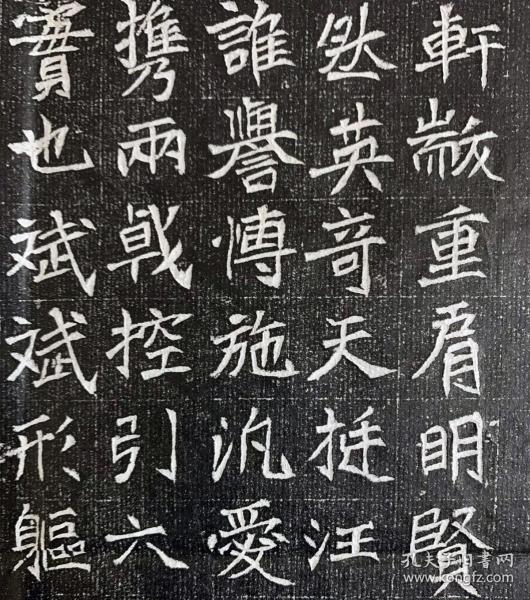 軒黻重肩眀賢
英竒天挺汪
誰譽博施汎愛
攜兩戟控引六
實也斌斌形軀
孔夫子旧书网
www.kongfz.com